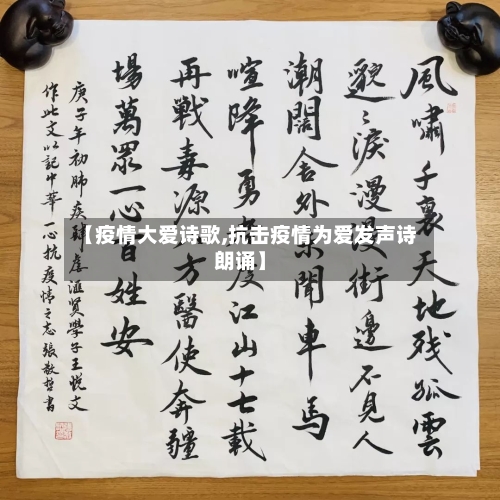 風嘯千裏天地残孤雲
邈邈淚漫漫街邊不見人
潮闊舍外 聞車馬
喧降勇 度江山十七載
再戰毒源 方醫使奔疆
場萬眾一心百姓安
庚子年初肺疾肆虐滙賢學子王悦文
作此文以記中華一心抗疫情之志張 哲書
【疫情大爱诗歌,抗击疫情为爱发声诗
朗诵】